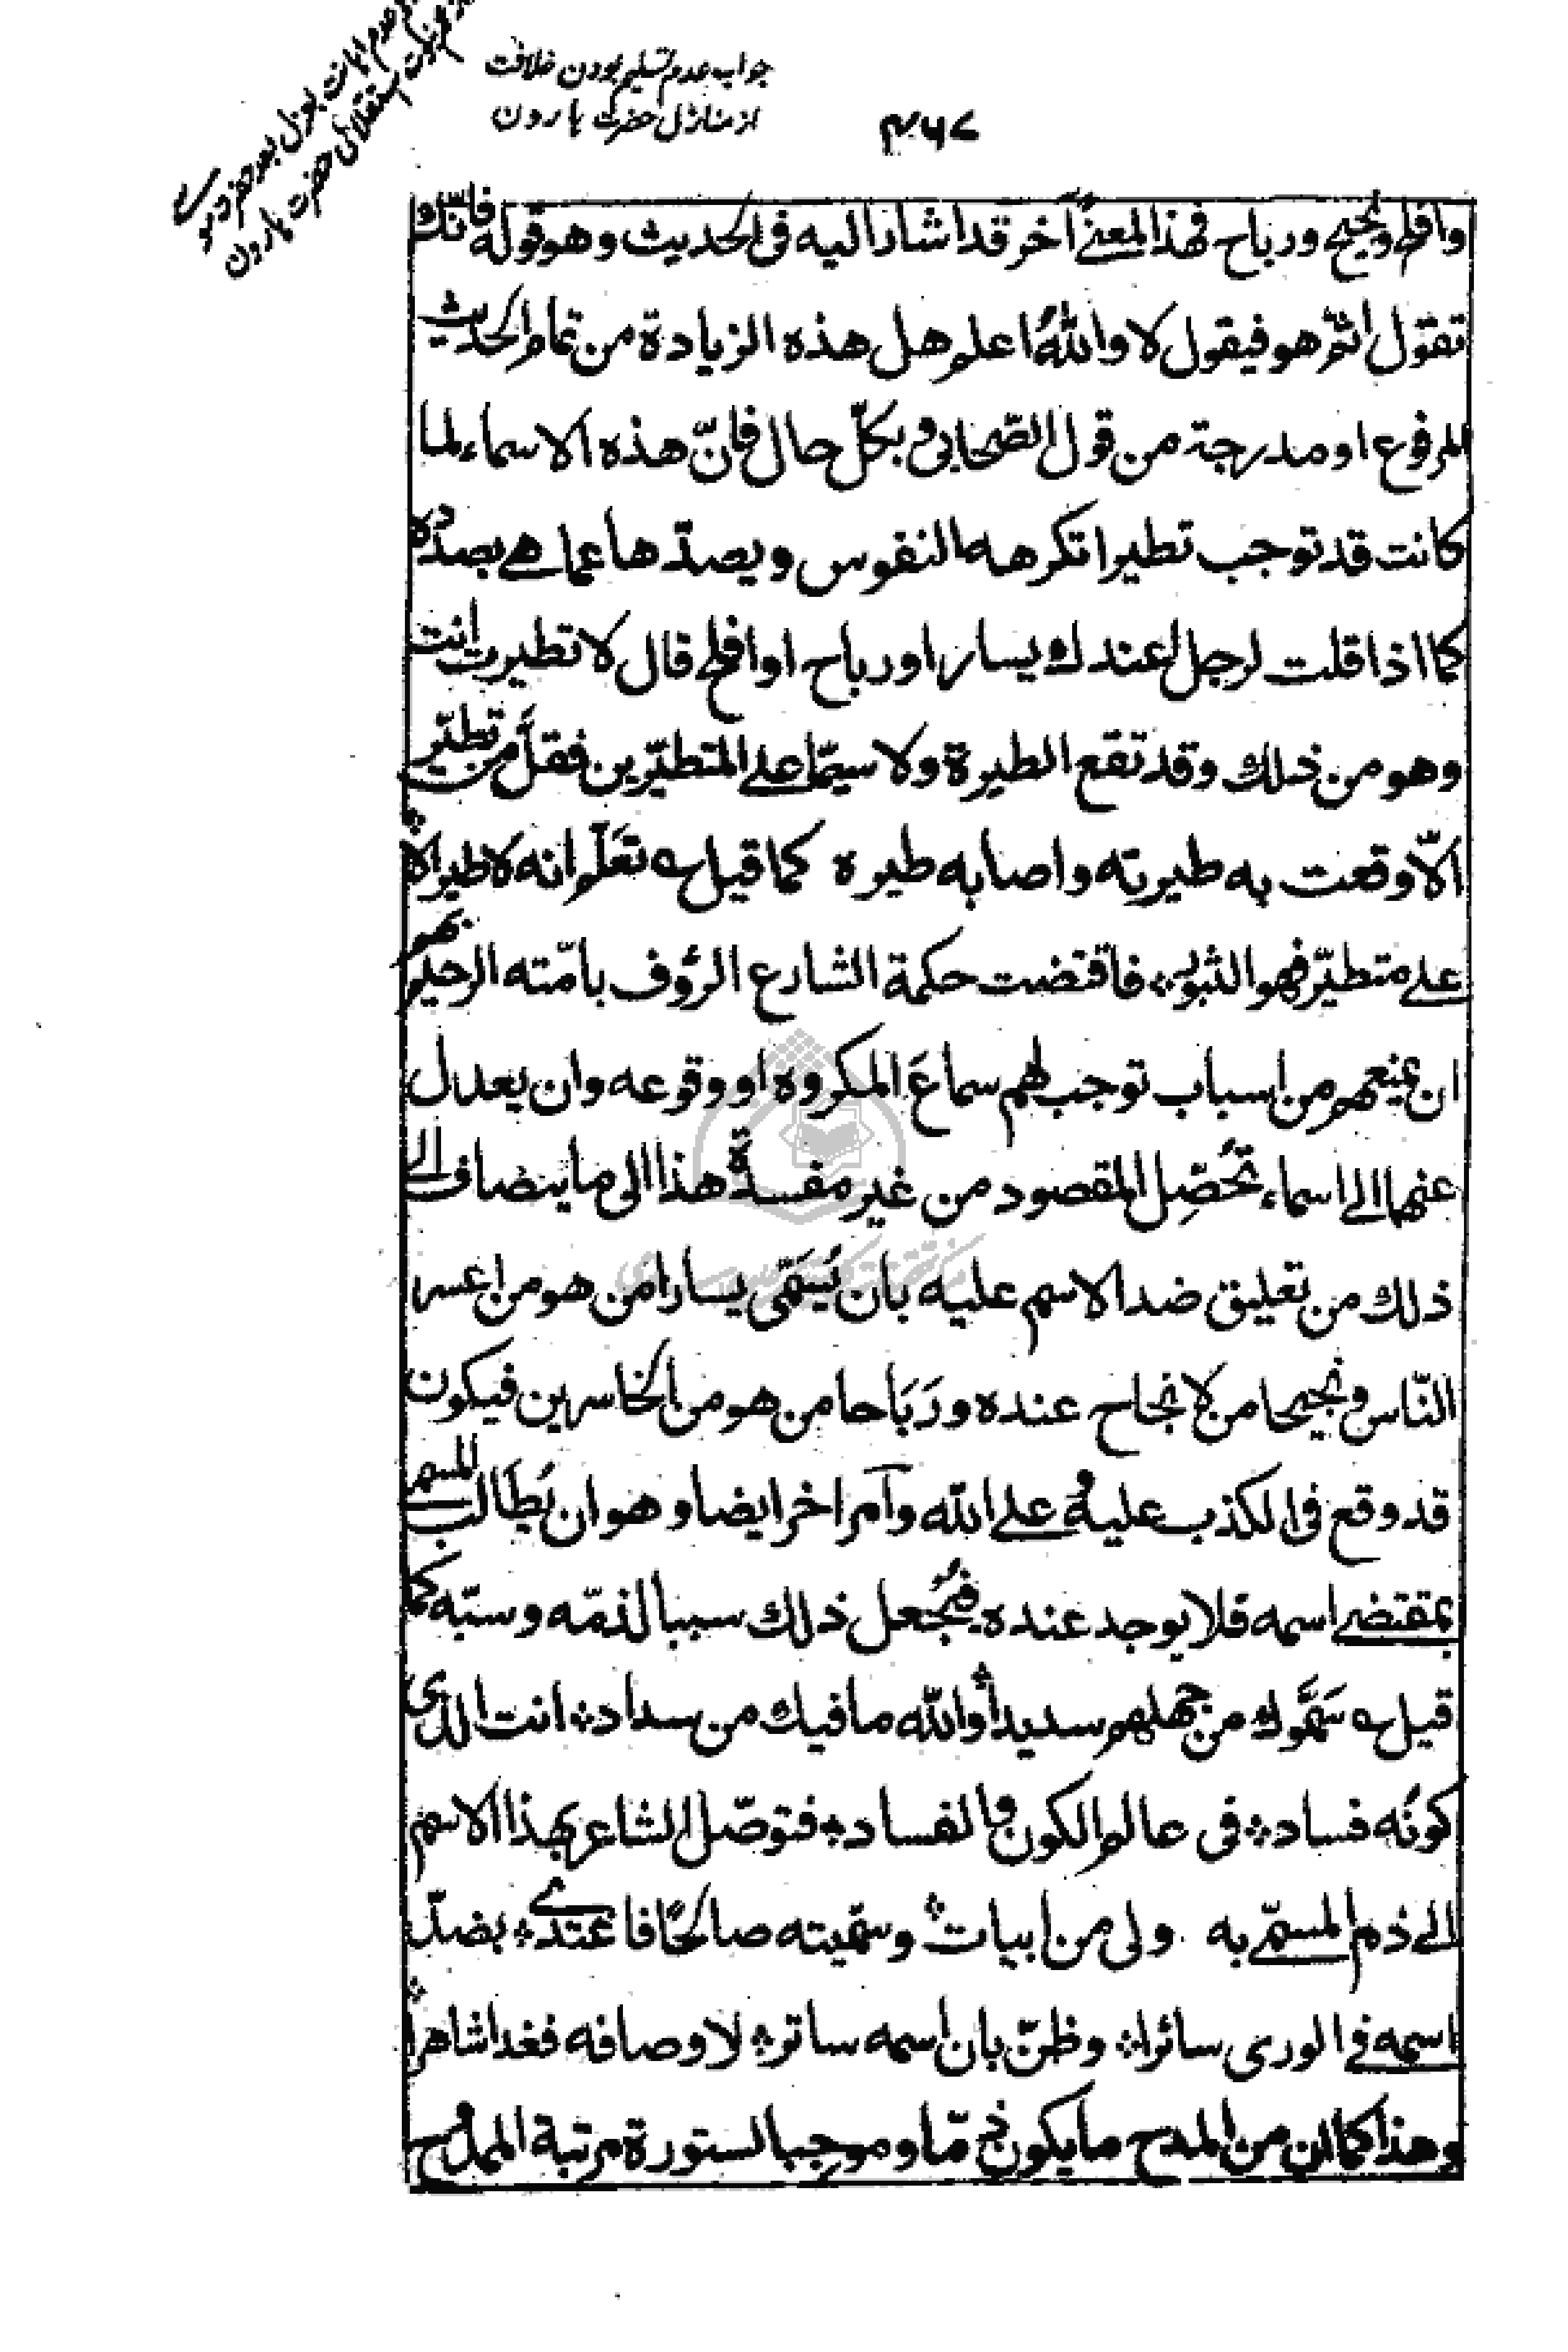 جواب عدم تسلیم بودن خلافت
از منازل حضرت هارون
۴۶۷
بعد حضرت موسی
استقلالی حضرت هارون
وافلح ونجيح ورباح فهذا المعنى آخر قد اشار اليه فى الحديث وهو قوله فانّك
تقول اثمّ هو فيقول لا والله اعلم هل هذه الزيادة من تمام الحديث
المرفوع او مدرجة من قول الصّحابى وبكلّ حال فانّ هذه الاسماء لما
كانت قد توجب تطيرا تكرهه النفوس ويصدّها عما هى بصدده
كما اذا قلت لرجل اعندك يسار او رباح او افلح قال لا تطيرت انت
وهو من ذلك وقد تقع الطيرة ولا سيّما على المتطيّرين فقلّ من تطيّر
الّا وقعت به طيرته واصابه طيره كما قيل ؎ تعلّم انه لا طير الّا
على متطيّر فهو الثبور فاقتضت حكمة الشارع الرؤف بامّته الرحيم بهم
ان يمنعهم من اسباب توجب لهم سماعَ المكروه او وقوعه وان يعدل
عنها الى اسماء تُحَصِّل المقصود من غير مفسدة هذا الى ما ينضاف الى
ذلك من تعليق ضد الاسم عليه بان يُسَمّى يسارا من هو من اعسر
النّاس ونجيحا من لا نجاح عنده ورَبَاحا من هو من الخاسرين فيكون
قد وقع فى الكذب عليه وعلى الله وآمر اخر ايضا وهو ان يُطَالَب المسمى
بمقتضى اسمه فلا يوجد عنده فيُجعل ذلك سببا لذمّه وسبّه كما
قيل ؎ سَمَّوك من جهلهم سديداً والله ما فيك من سداد انت الذى
كونُه فساد فى عالم الكون والفساد فتوصّل الشاعر بهذا الاسم
الى ذم المسمّى به ولى من ابيات وسمّيته صالحًا فاغتدى بضدّ
اسمه فى الورى سائرا وظنّ بان اسمه ساتر لاوصافه فغدا شاهرا
وهذا كما ان من المدح ما يكون ذمّا وموجبا لسقوط مرتبة الممدوح